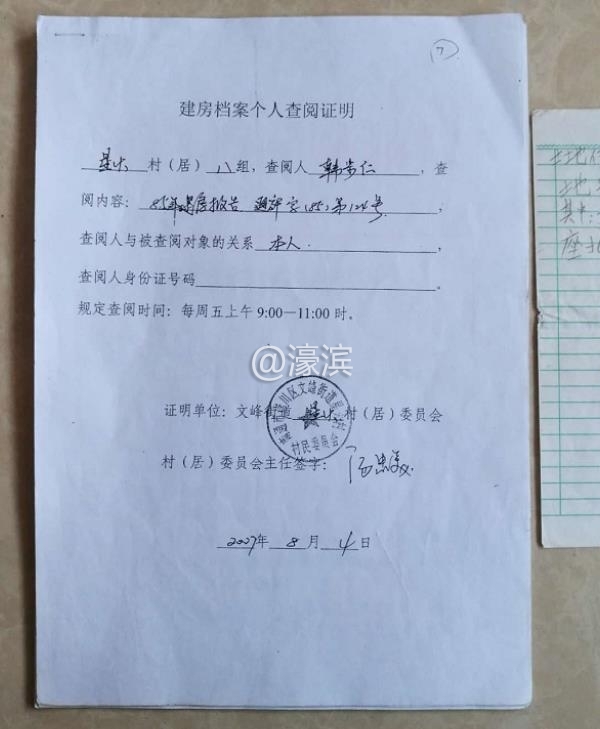 ⑦
建房档案个人查阅证明
星火 村（居） 八 组，查阅人 韩步仁 ，查
阅内容： 85年建房报告 字（85）第124号 ，
查阅人与被查阅对象的关系 本人 ，
查阅人身份证号码 。
规定查阅时间：每周五上午 9:00—11:00 时。
@濠滨
证明单位：文峰街道 星火 村（居）委员会
南通市崇川区文峰街道星火村
村民委员会
村（居）委员会主任签字：
2007年 8 月 4 日
土地
土地
其中：
座北